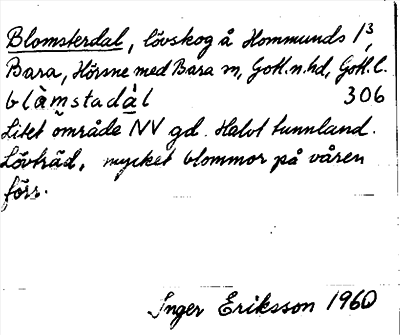 Blomsterdal, lövskog å Hommunds 1³,
Bara, Hörsne med Bara sn, Gotl.n.hd, Gotl.l.
blàmstadàl 306
Litet område NV gd. Halvt tunnland.
Lövträd, mycket blommor på våren
förr.
Inger Eriksson 1960